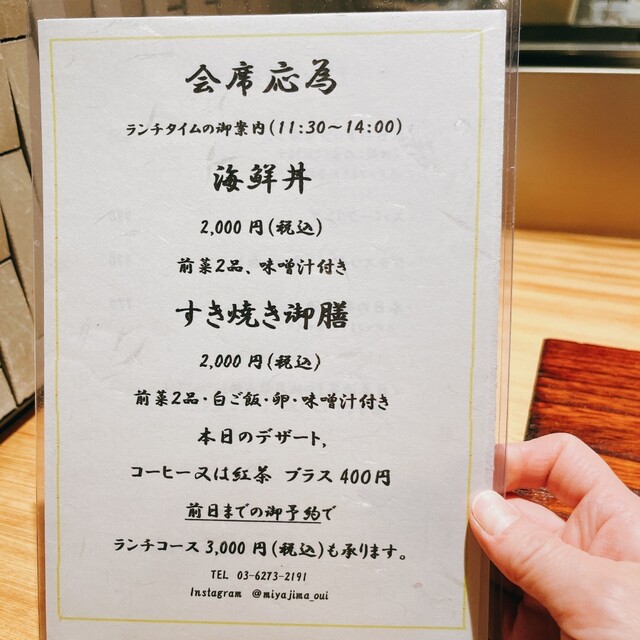 会席応為
ランチタイムの御案内(11:30～14:00)
海鮮丼
2,000円(税込)
前菜2品、味噌汁付き
すき焼き御膳
2,000円(税込)
前菜2品・白ご飯・卵・味噌汁付き
本日のデザート,
コーヒー又は紅茶 プラス400円
前日までの御予約で
ランチコース3,000円(税込)も承ります。
TEL 03-6273-2191
Instagram @miyajima_oui